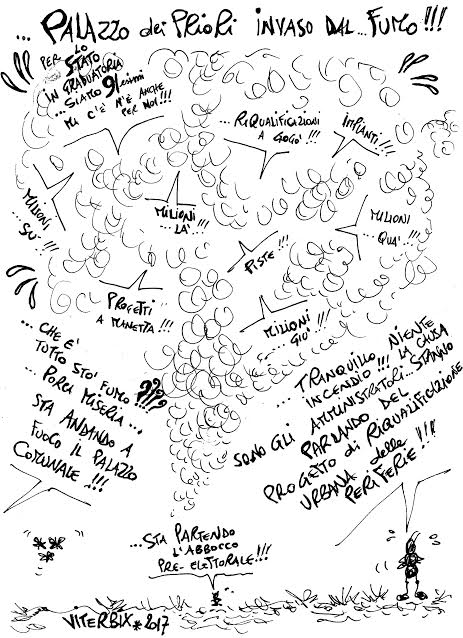 ... PALAZZO dei PRIORI INVASO DAL... FUMO!!!
PER LO
STATO
IN GRADUATORIA
...SIAMO 91esimi
MA C'È N'È ANCHE
PER NOI!!!
...RIQUALIFICAZIONI
A GOGO'!!!
IMPIANTI!!!
MILIONI
...SU'!!!
MILIONI
...LA'!!!
MILIONI
...QUA'!!!
PISTE!!!
PROGETTI
A MANETTA!!!
MILIONI
...GIU'!!!
...CHE E'
TUTTO STO' FUMO???!!!!
...PORCA MISERIA...
STA ANDANDO A
FUOCO IL PALAZZO
COMUNALE!!!
...TRANQUILLO NIENTE
INCENDIO!!! LA CAUSA
SONO GLI AMMINISTRATORI... STANNO
PARLANDO DEL
PROGETTO di RIQUALIFICAZIONE
URBANA delle
PERIFERIE!!!
...STA PARTENDO
L'ABBOCCO
PRE-ELETTORALE!!!
VITERBIX*2017